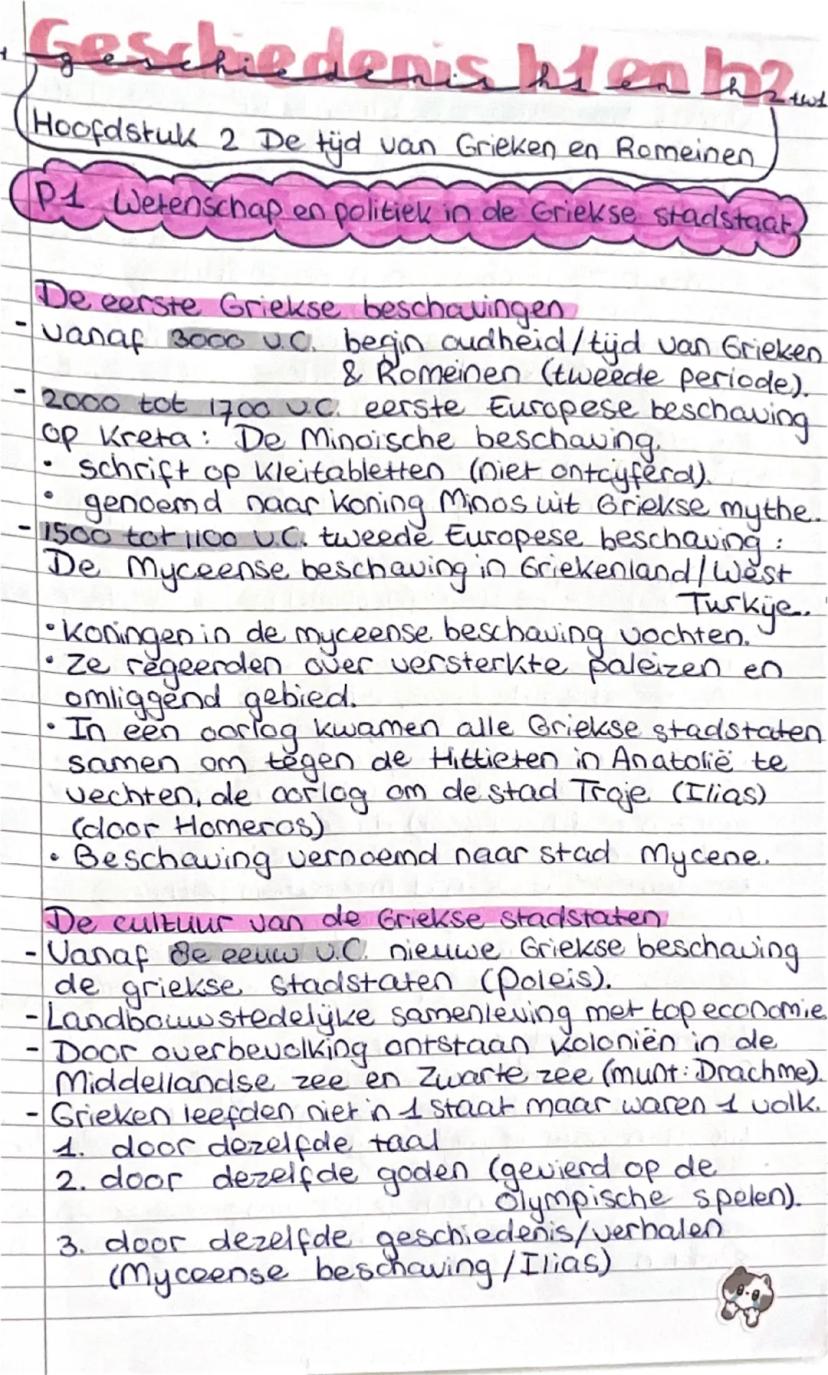 Geschiedenis h1 en h2
geschiedenis h1 en h2 tw1
Hoofdstuk 2 De tijd van Grieken en Romeinen
P1 Wetenschap en politiek in de Griekse stadstaat
De eerste Griekse beschavingen
- vanaf 3000 v.C. begin oudheid/tijd van Grieken
& Romeinen (tweede periode).
- 2000 tot 1700 v.C. eerste Europese beschaving
op Kreta: De Minoische beschaving.
• schrift op kleitabletten (niet ontcijferd).
• genoemd naar koning Minos uit Griekse mythe.
- 1500 tot 1100 v.C. tweede Europese beschaving:
De Myceense beschaving in Griekenland/West
Turkije.
• Koningen in de myceense beschaving vochten.
• Ze regeerden over versterkte paleizen en
omliggend gebied.
• In een oorlog kwamen alle Griekse stadstaten
samen om tegen de Hittieten in Anatolië te
vechten, de oorlog om de stad Troje (Ilias)
(door Homeros)
• Beschaving vernoemd naar stad Mycene.
De cultuur van de Griekse stadstaten
- Vanaf 8e eeuw v.C. nieuwe Griekse beschaving
de griekse stadstaten (poleis).
- Landbouwstedelijke samenleving met top economie
- Door overbevolking ontstaan koloniën in de
Middellandse zee en Zwarte zee (munt: Drachme)
- Grieken leefden niet in 1 staat maar waren 1 volk.
1. door dezelfde taal
2. door dezelfde goden (gevierd op de
Olympische spelen).
3. door dezelfde geschiedenis/verhalen
(Myceense beschaving/Ilias)